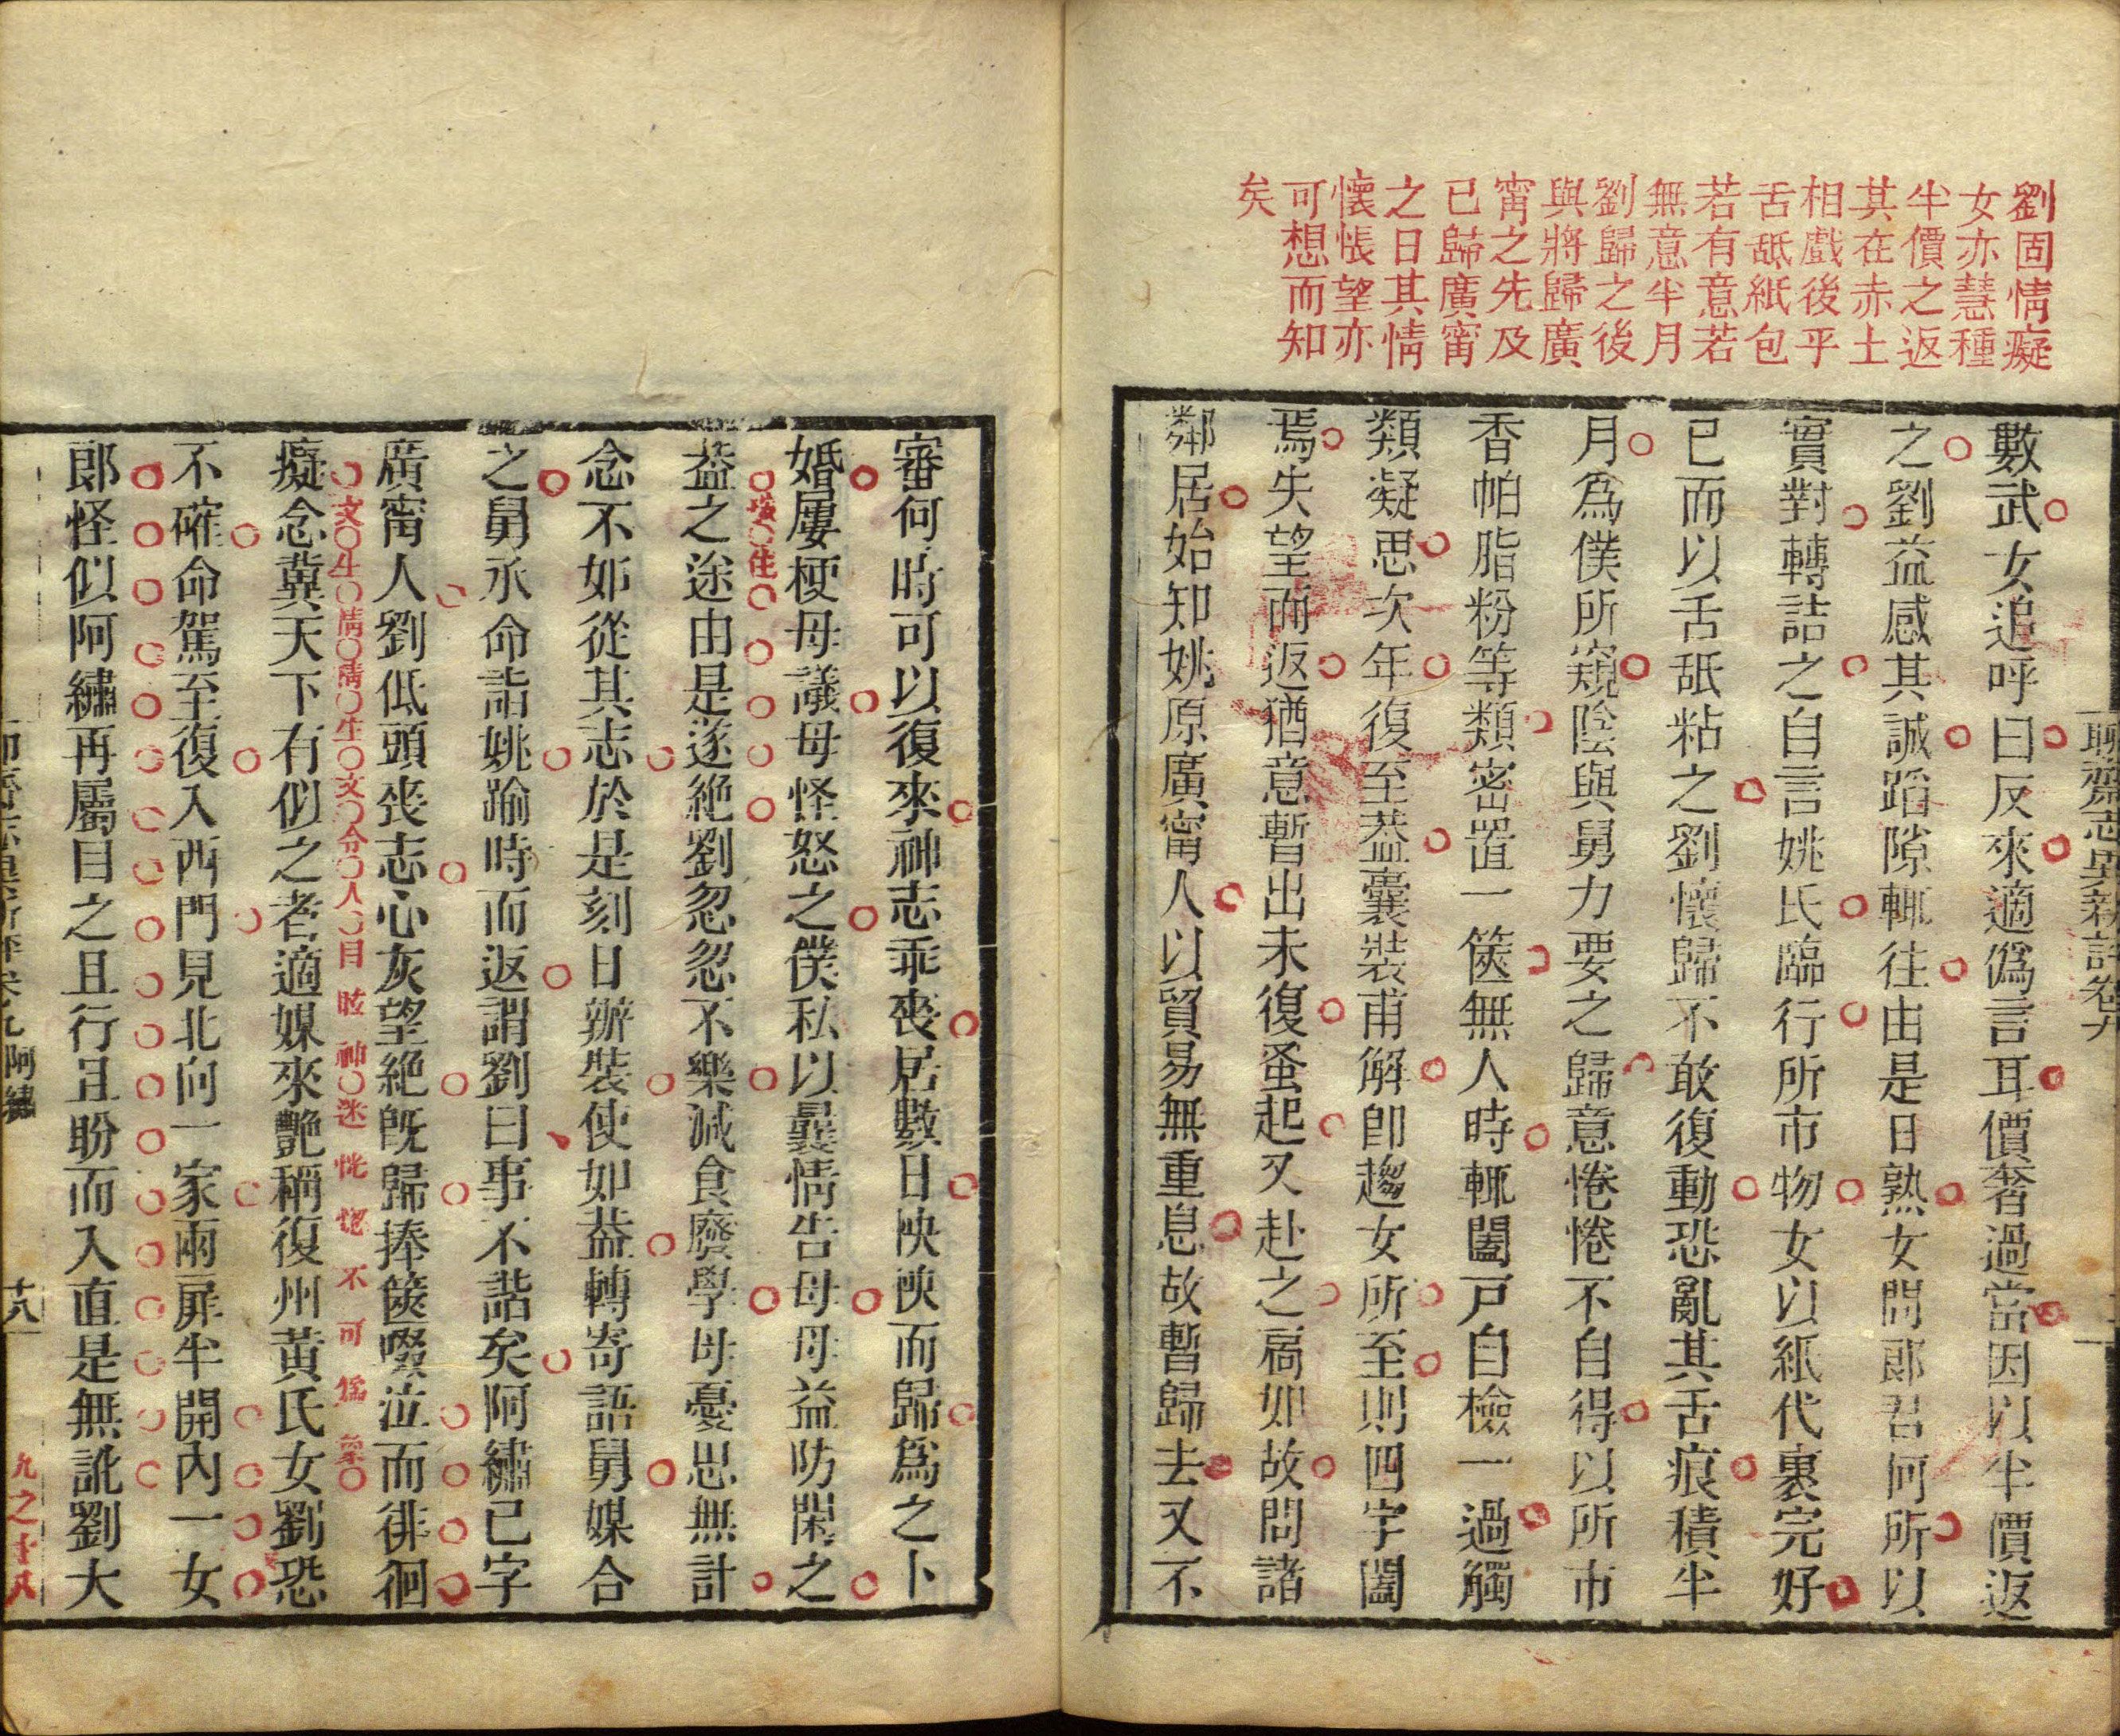 聊齋志異新評卷九
劉固情癡
女亦慧種
半價之返
其在赤土
相戲後乎
舌舐紙包
若有意若
無意半月
劉歸之後
與將歸廣
甯之先及
已歸廣甯
之日其情
懷悵望亦
可想而知
矣
數武女追呼曰反來適僞言耳價奢過當因以半價返
之劉益感其誠蹈隙輒往由是日熟女問郎君何所以
實對轉詰之自言姚氏臨行所市物女以紙代裹完好
已而以舌舐粘之劉懷歸不敢復動恐亂其舌痕積半
月爲僕所窺陰與舅力要之歸意惓惓不自得以所市
香帕脂粉等類密置一篋無人時輒闔戸自檢一過觸
類凝思次年復至葢囊裝甫解卽趨女所至則四字闔
焉失望而返猶意暫出未復蚤起又赴之扃如故問諸
鄰居始知姚原廣甯人以貿易無重息故暫歸去又不
審何時可以復來神志乖喪居數日怏怏而歸爲之卜
婚屢梗母議母怪怒之僕私以曩情告母母益防閑之
葢之途由是遂絶劉忽忽不樂減食廢學母憂思無計
念不如從其志於是刻日辦裝使如葢轉寄語舅媒合
之舅承命詣姚踰時而返謂劉曰事不諧矣阿繡已字
廣甯人劉低頭喪志心灰望絶旣歸捧篋啜泣而徘徊
文生情情生文令人目眩神迷恍惚不可爲象
癡念冀天下有似之者適媒來艷稱復州黃氏女劉恐
不確命駕至復入西門見北向一家兩扉半開內一女
郎怪似阿繡再屬目之且行且盼而入直是無訛劉大
阿繡
十八
九之十八